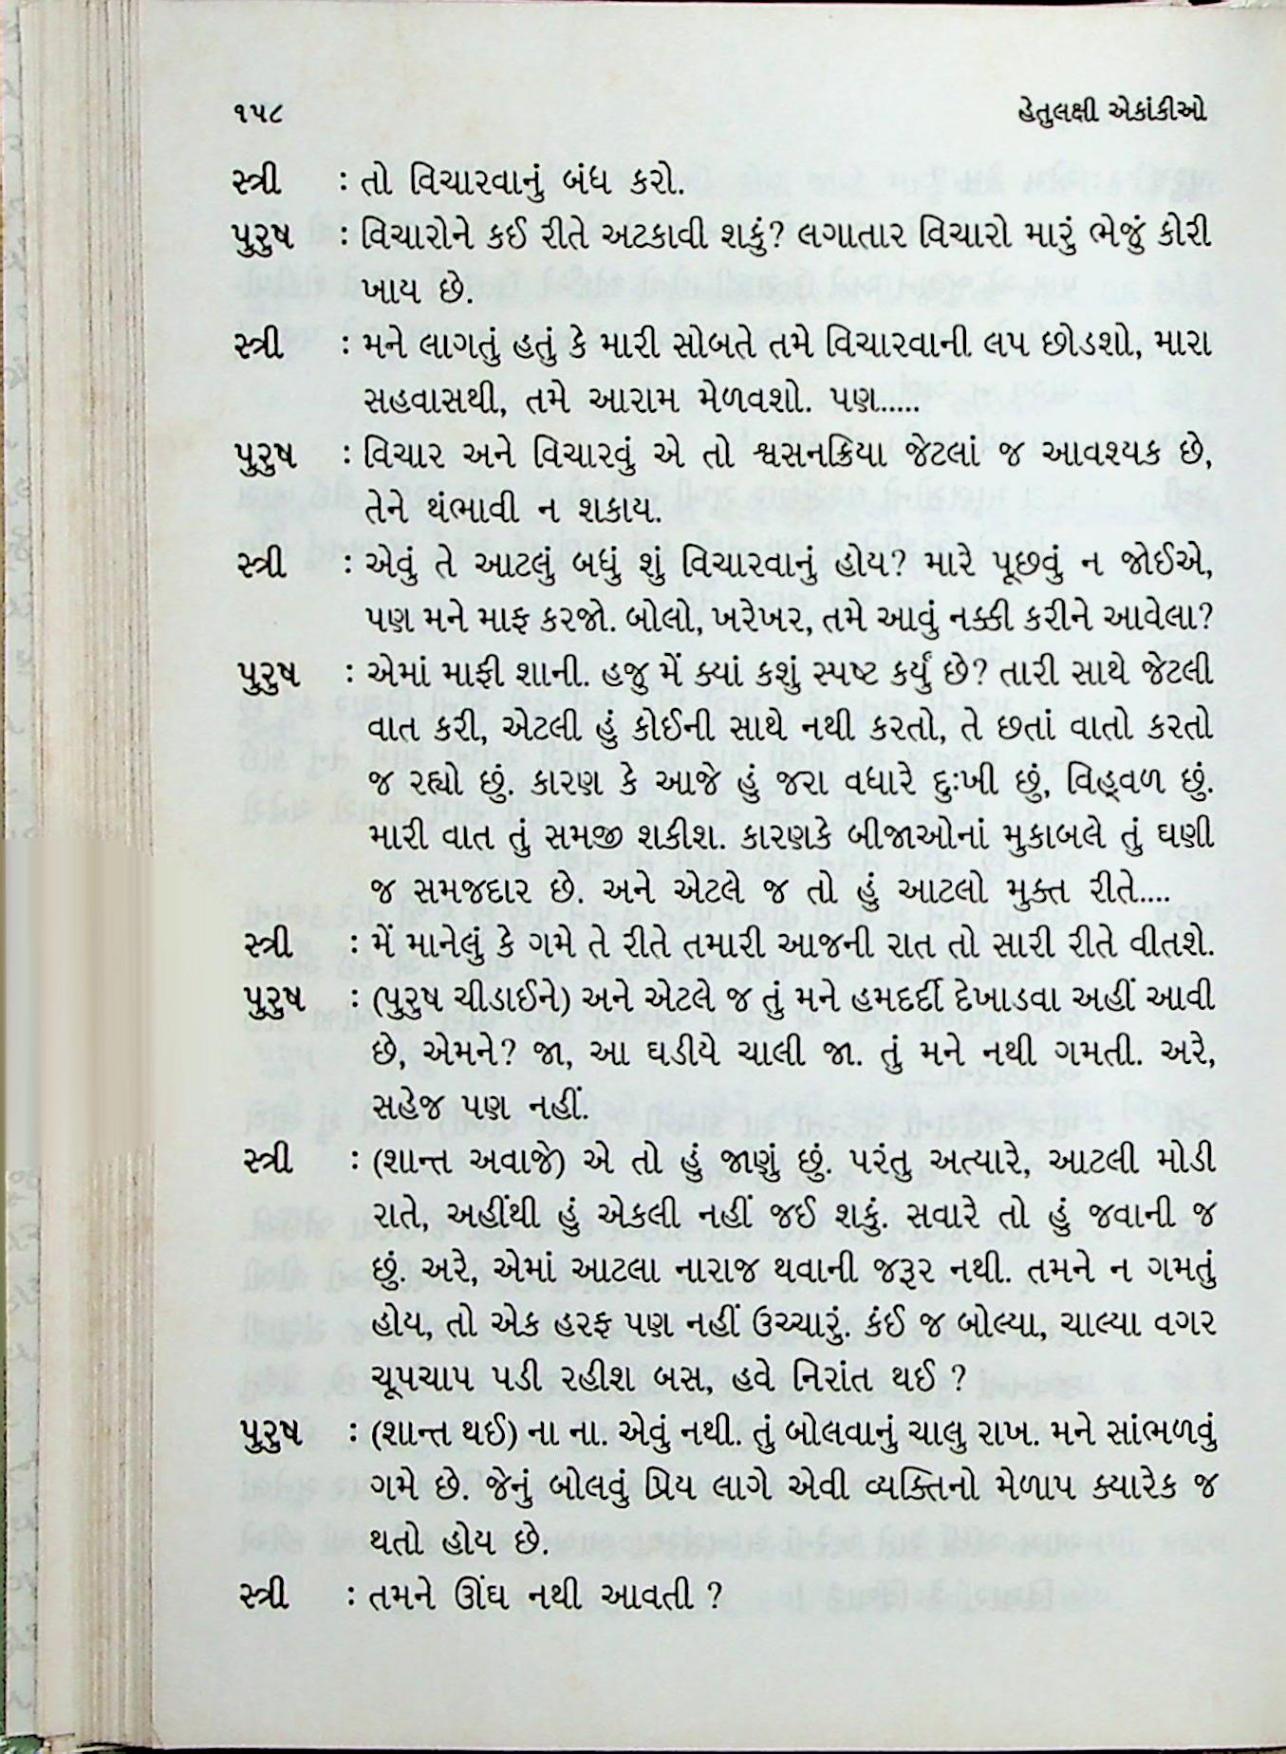 ૧૫૮ હેતુલક્ષી એકાંકીઓ
સ્ત્રી : તો વિચારવાનું બંધ કરો.
પુરુષ : વિચારોને કઈ રીતે અટકાવી શકું? લગાતાર વિચારો મારું ભેજું કોરી
ખાય છે.
સ્ત્રી : મને લાગતું હતું કે મારી સોબતે તમે વિચારવાની લપ છોડશો, મારા
સહવાસથી, તમે આરામ મેળવશો. પણ.....
પુરુષ : વિચાર અને વિચારવું એ તો શ્વસનક્રિયા જેટલાં જ આવશ્યક છે,
તેને થંભાવી ન શકાય.
સ્ત્રી : એવું તે આટલું બધું શું વિચારવાનું હોય? મારે પૂછવું ન જોઈએ,
પણ મને માફ કરજો. બોલો, ખરેખર, તમે આવું નક્કી કરીને આવેલા?
પુરુષ : એમાં માફી શાની. હજુ મેં ક્યાં કશું સ્પષ્ટ કર્યું છે? તારી સાથે જેટલી
વાત કરી, એટલી હું કોઈની સાથે નથી કરતો, તે છતાં વાતો કરતો
જ રહ્યો છું. કારણ કે આજે હું જરા વધારે દુઃખી છું, વિહ્‌વળ છું.
મારી વાત તું સમજી શકીશ. કારણકે બીજાઓનાં મુકાબલે તું ઘણી
જ સમજદાર છે. અને એટલે જ તો હું આટલો મુક્ત રીતે....
સ્ત્રી : મેં માનેલું કે ગમે તે રીતે તમારી આજની રાત તો સારી રીતે વીતશે.
પુરુષ : (પુરુષ ચીડાઈને) અને એટલે જ તું મને હમદર્દી દેખાડવા અહીં આવી
છે, એમને? જા, આ ઘડીયે ચાલી જા. તું મને નથી ગમતી. અરે,
સહેજ પણ નહીં.
સ્ત્રી : (શાન્ત અવાજે) એ તો હું જાણું છું. પરંતુ અત્યારે, આટલી મોડી
રાતે, અહીંથી હું એકલી નહીં જઈ શકું. સવારે તો હું જવાની જ
છું. અરે, એમાં આટલા નારાજ થવાની જરૂર નથી. તમને ન ગમતું
હોય, તો એક હરફ પણ નહીં ઉચ્ચારું. કંઈ જ બોલ્યા, ચાલ્યા વગર
ચૂપચાપ પડી રહીશ બસ, હવે નિરાંત થઈ ?
પુરુષ : (શાન્ત થઈ) ના ના. એવું નથી. તું બોલવાનું ચાલુ રાખ. મને સાંભળવું
ગમે છે. જેનું બોલવું પ્રિય લાગે એવી વ્યક્તિનો મેળાપ ક્યારેક જ
થતો હોય છે.
સ્ત્રી : તમને ઊંઘ નથી આવતી ?